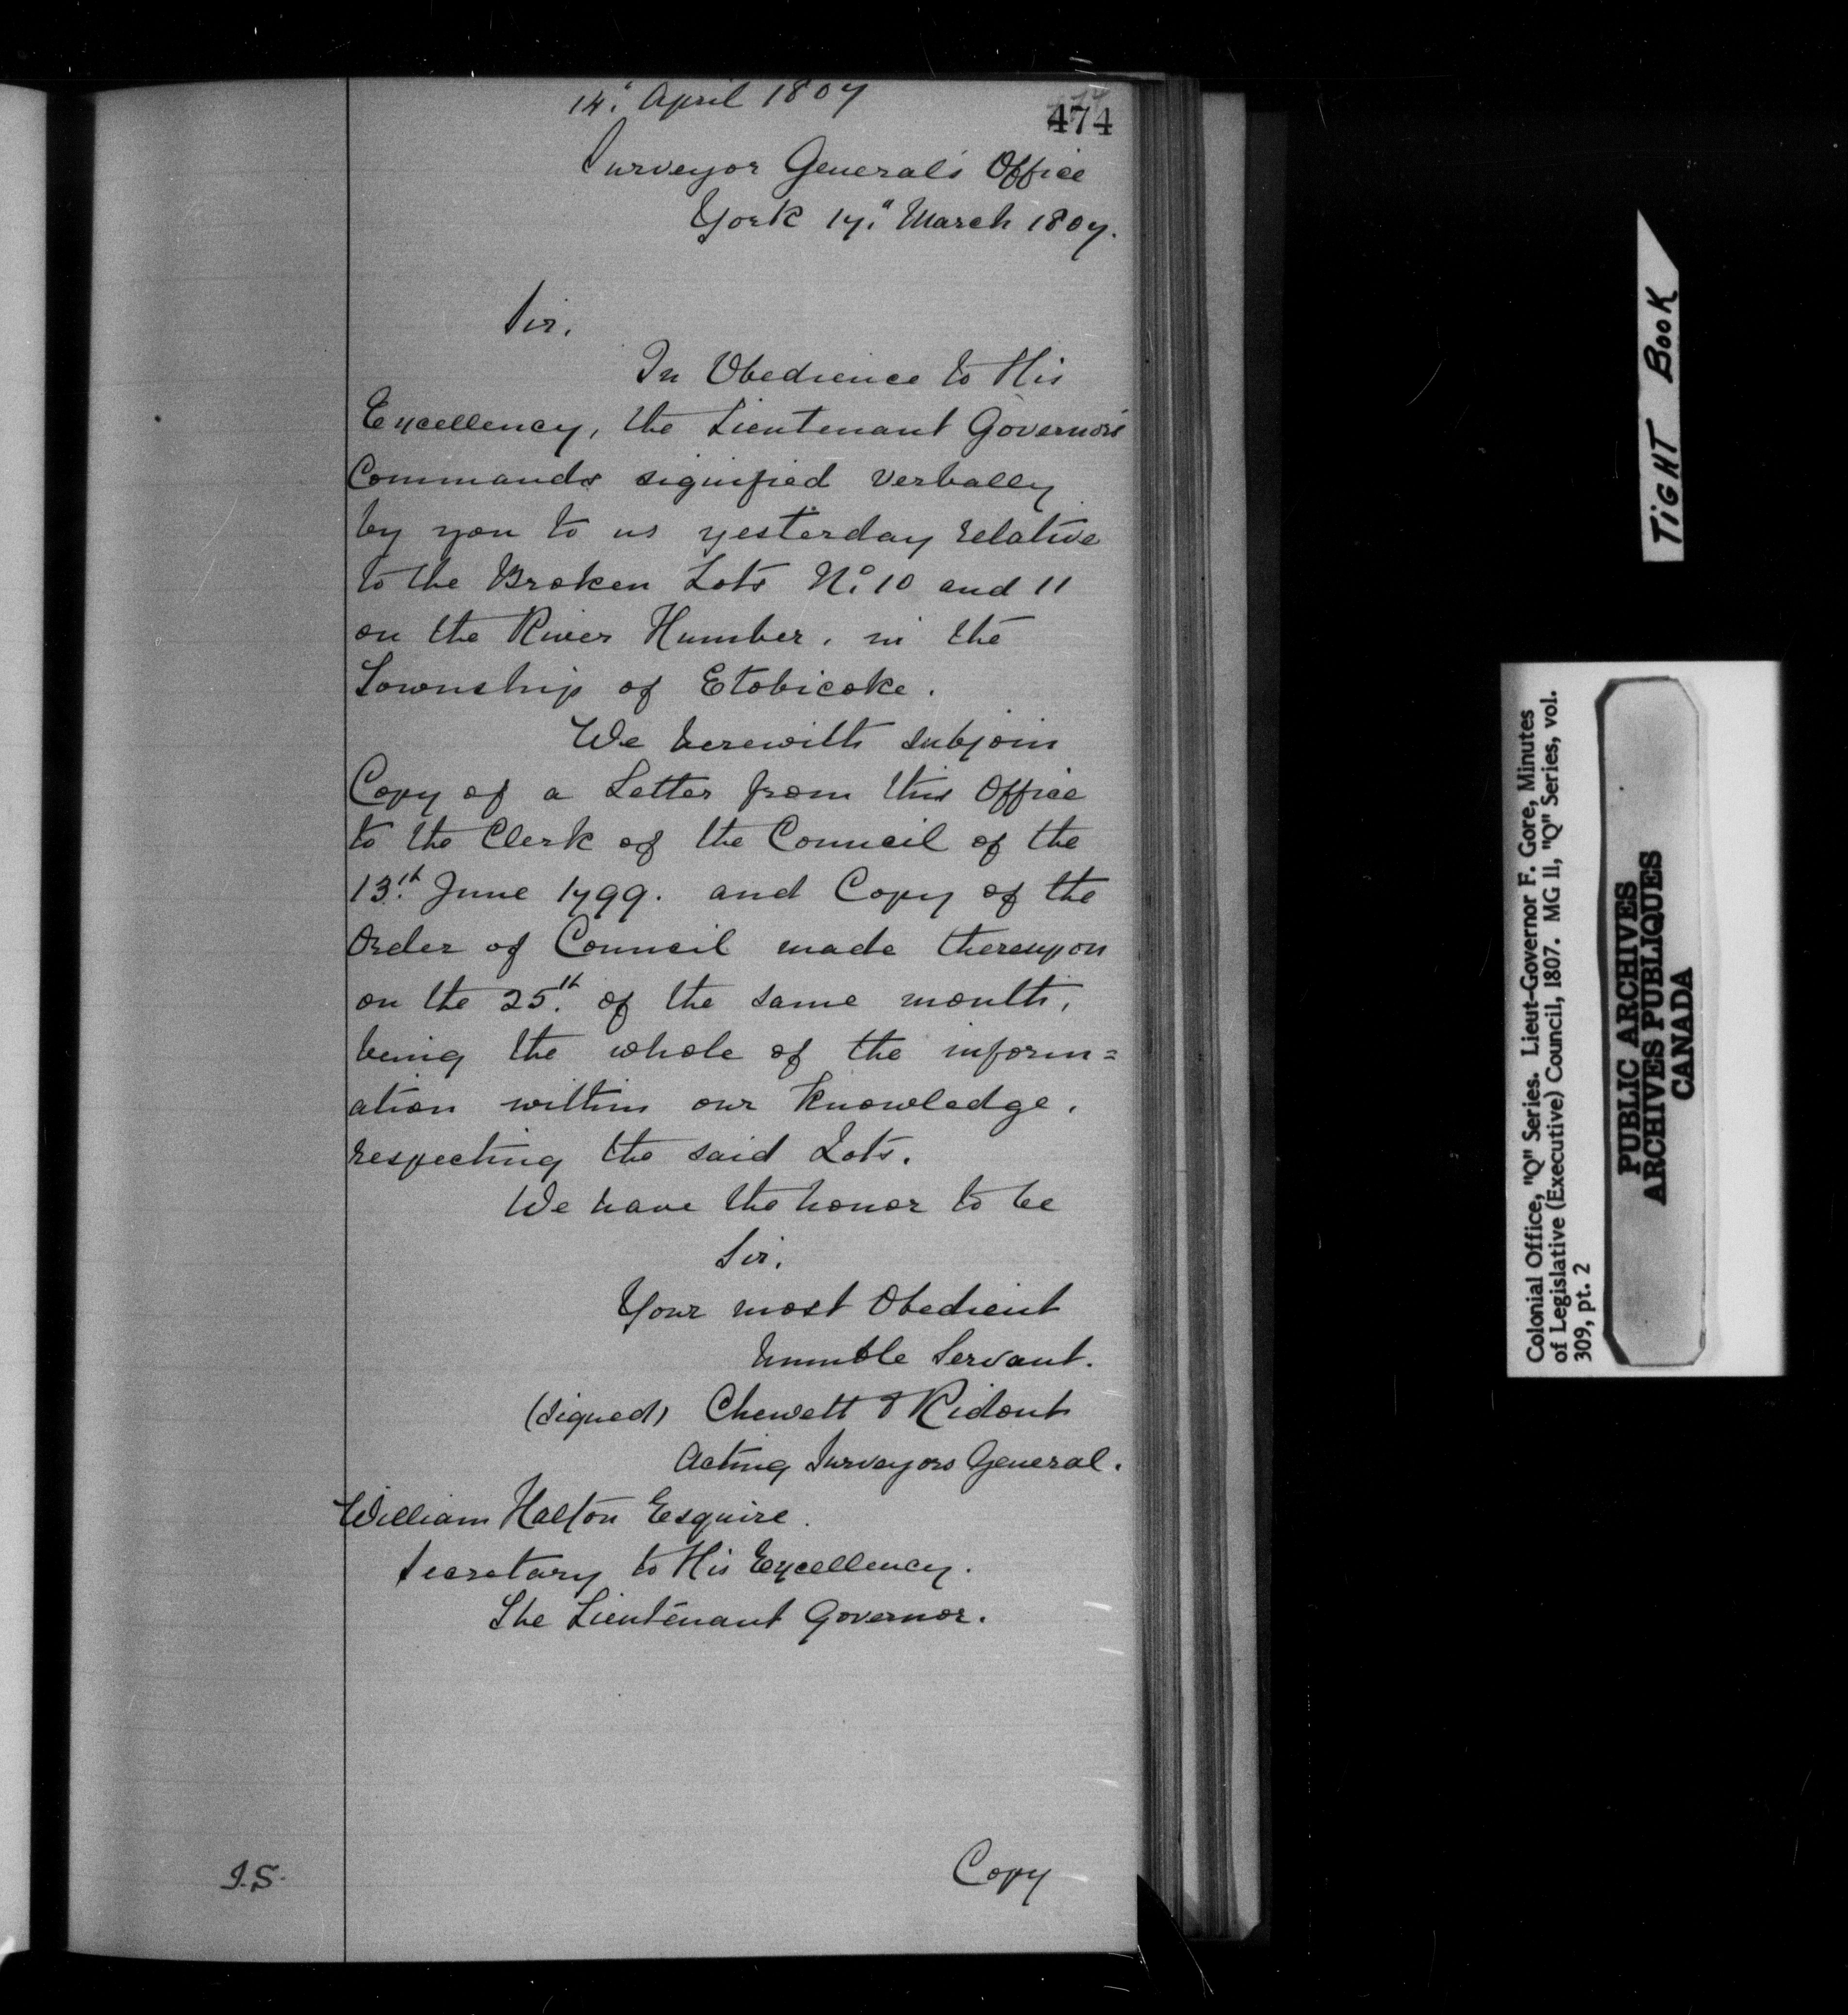 14. April 1807
474
Surveyor General's Office
York 17." March 1807.
Sir.
In Obedience to His
Excellency, the Lieutenant Governor's
Commands signified verbally
by you to us yesterday relative
to the Broken Lots No. 10 and 11
on the River Humber, in the
Township of Etobicoke.
We herewith subjoin
Copy of a Letter from this Office
to the Clerk of the Council of the
13th. June 1799. and Copy of the
Order of Council made thereupon
on the 25th. of the same month,
being the whole of the inform=
ation within our knowledge,
respecting the said Lots.
We have the honor to be
Sir,
Your most Obedient
humble Servant.
(signed) Chewett & Ridout
Acting Surveyors General.
William Halton Esquire.
Secretary to His Excellency.
The Lieutenant Governor.
I.S.
Copy
TIGHT BOOK
Colonial Office, "Q" Series. Lieut-Governor F. Gore, Minutes
of Legislative (Executive) Council, 1807. MG 11, "Q" Series, vol.
309, pt. 2
PUBLIC ARCHIVES
ARCHIVES PUBLIQUES
CANADA